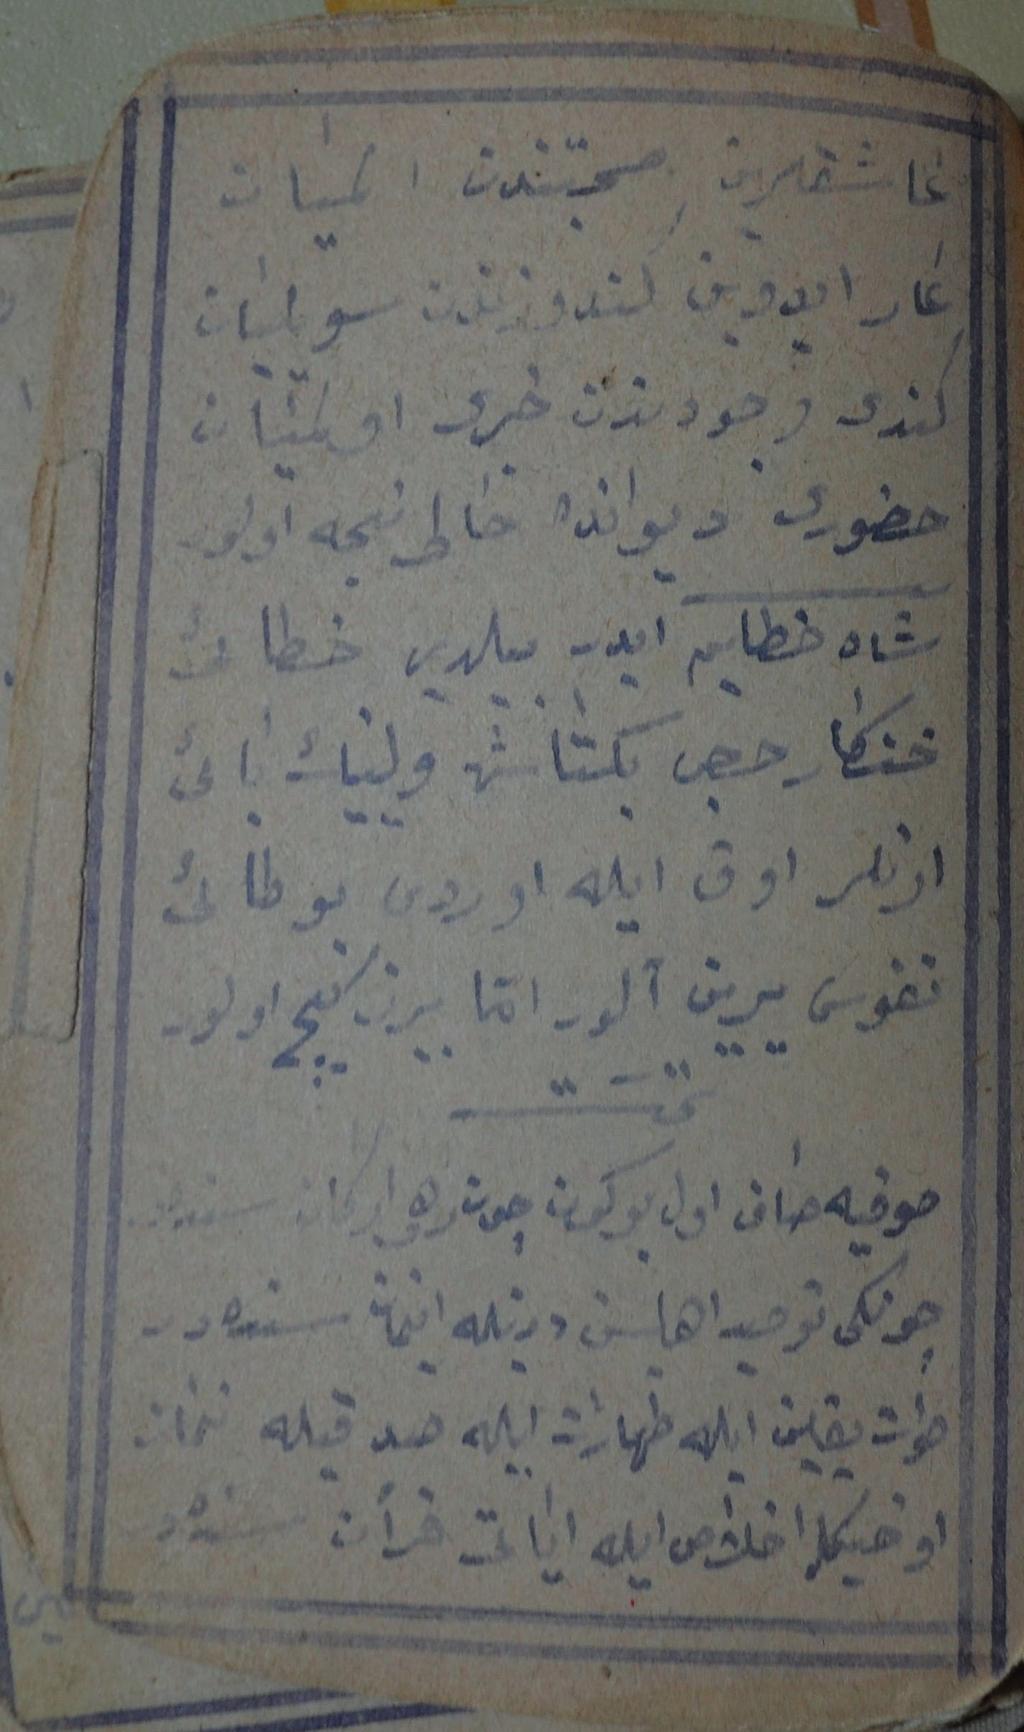 عاشقلرين صحبتندن المیان
عار ایدوبن کندوزندن سویلمیان
کندی وجودیندن خبری اولمیان
حضوری دیوانده حالی نیجه اولور
شاه خطایم ایدر بیلدیر خطائی
خنکار حجی بکتاش ولینك
ارنلر اوق ایله اوردی بو
نفوس یرین آلور اما اولور
تمت
صوفیه صاف اول بوکون چون سنده در
چونکی توحید اهلیسن دیلیله ایمان سنده در
یقین ایله طهارت ایله صدقیله نماز
اوخیکل اخلاص ایله ایاتی قرآن سنده در